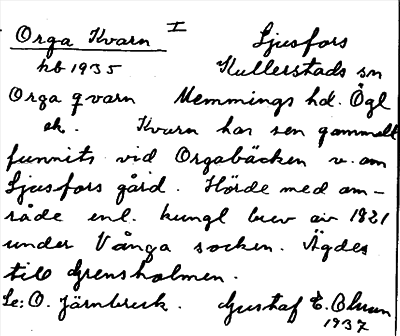 Orga Kvarn I Ljusfors
hb 1935 Kullerstads sn
Orga qvarn Memmings hd. Ögl
ek. Kvarn har sen gammalt
funnits vid Orgabäcken v. om
Ljusfors gård. Hörde med om-
råde enl. kungl brev av 1821
under Vånga socken. Ägdes
till Grensholmen.
Se: O. Järnbruk. Gustaf E. Olsson
1937